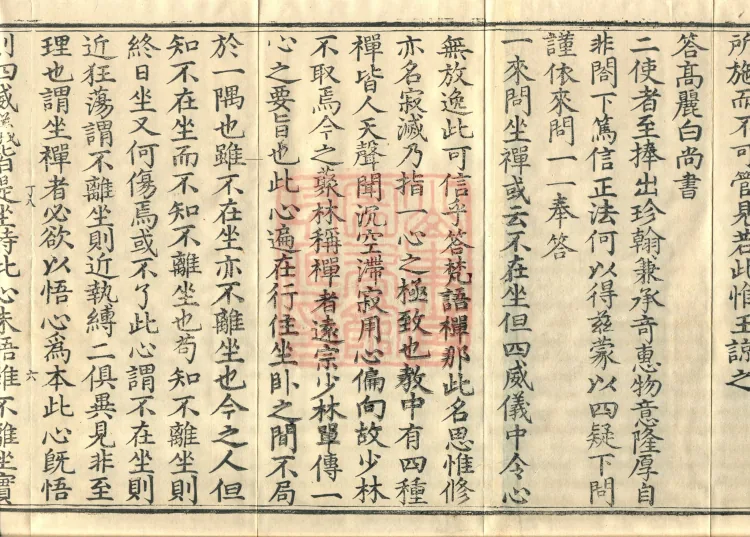 所施而不可管見若此惟王諒之
答高麗白尚書
二使者至捧出珍翰兼承奇惠物意隆厚自
非閤下篤信正法何以得玆蒙以四疑下問
謹依來問一一奉答
一來問坐禪或云不在坐但四威儀中令心
無放逸此可信乎答梵語禪那此名思惟修
亦名寂滅乃指一心之極致也教中有四種
禪皆人天聲聞沉空滯寂用心偏向故少林
不取焉今之叢林稱禪者遠宗少林單傳一
心之要旨也此心遍在行住坐臥之間不局
於一隅也雖不在坐亦不離坐也今之人但
知不在坐而不知不離坐也苟知不離坐則
終日坐又何傷焉或不了此心謂不在坐則
近狂蕩謂不離坐則近執縛二俱異見非至
理也謂坐禪者必欲以悟心爲本此心旣悟
六
則四威儀皆是坐時此心未悟雖不離坐實